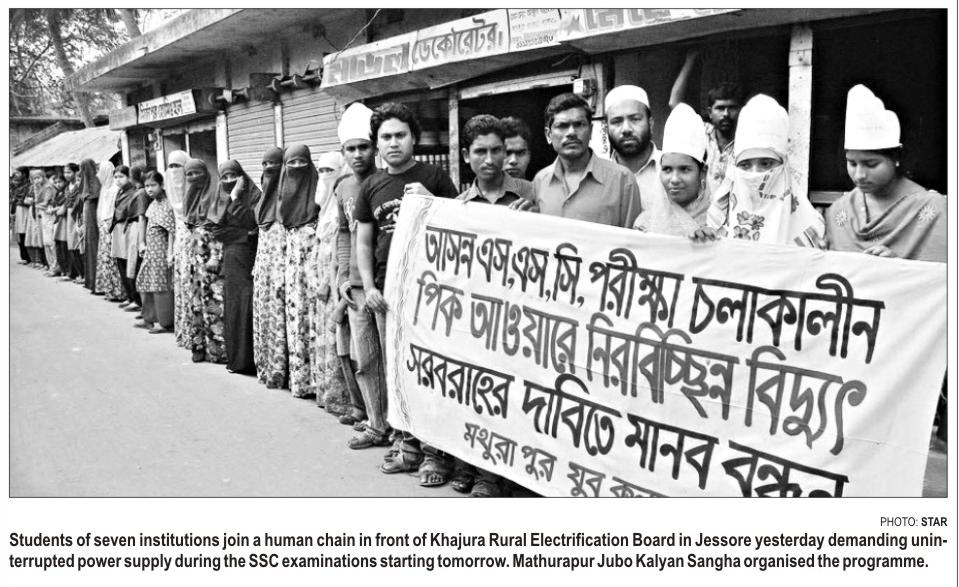 মডেল ডেকোরেটর
আসন্ন এস,এস,সি, পরীক্ষা চলাকালীন
পিক আওয়ারে নিরবিচ্ছিন্ন বিদ্যুৎ
সরবরাহের দাবিতে মানব বন্ধন
মথুরা পুর যুব
PHOTO: STAR
Students of seven institutions join a human chain in front of Khajura Rural Electrification Board in Jessore yesterday demanding unin-
terrupted power supply during the SSC examinations starting tomorrow. Mathurapur Jubo Kalyan Sangha organised the programme.